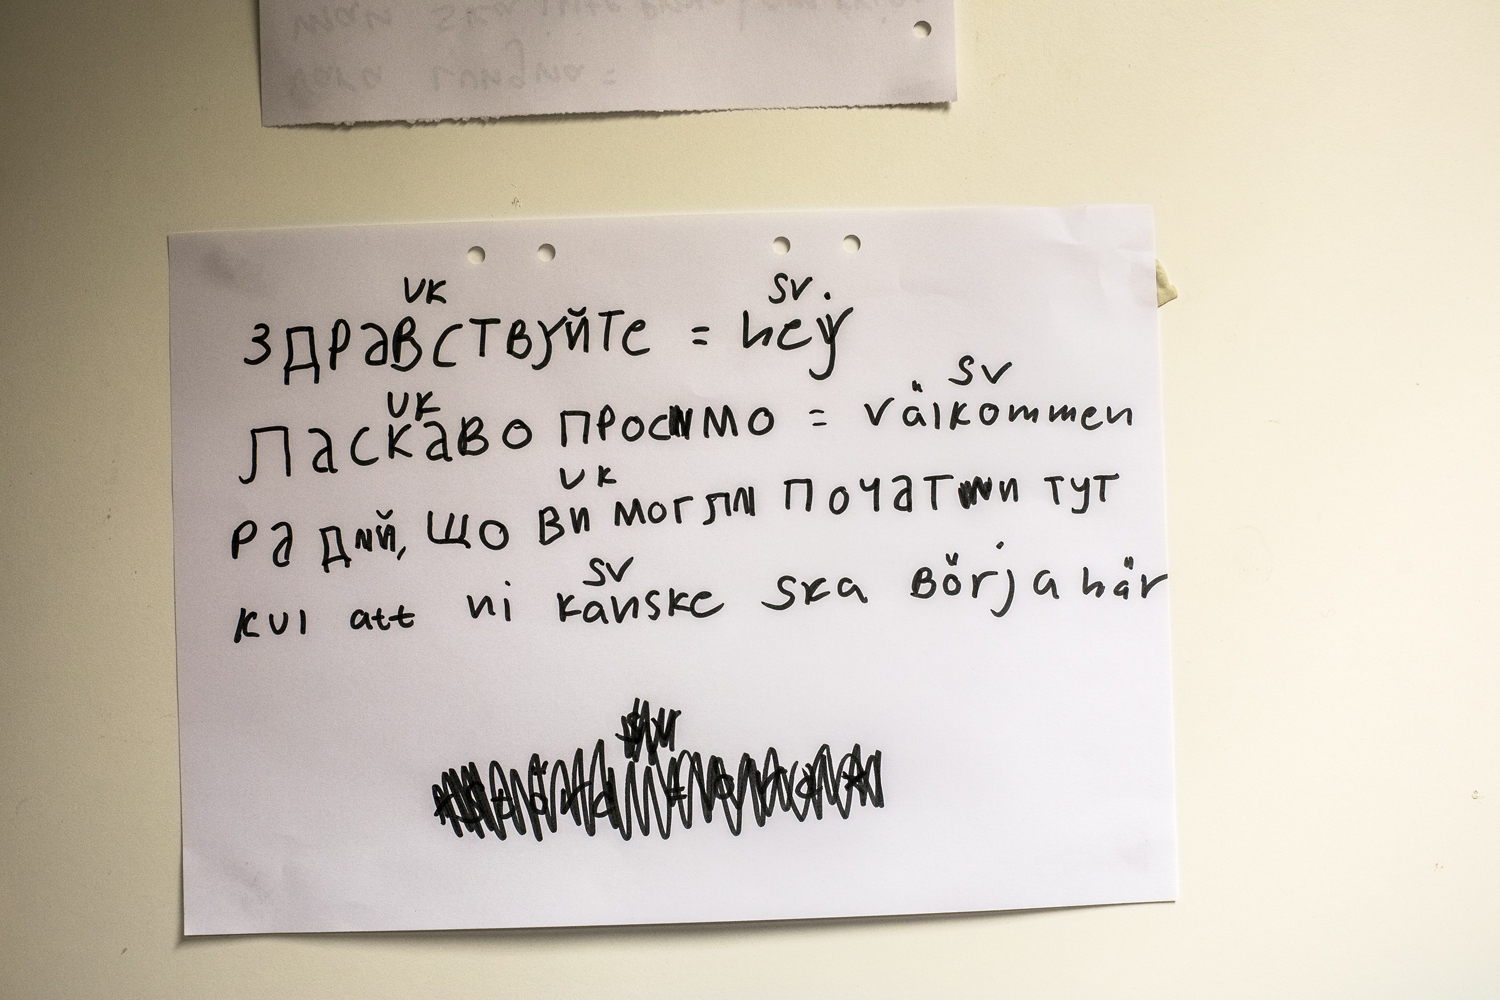 UK SV.
ЗДРАВСТВУЙТЕ = hej
UK SV
Ласкаво просимо = välkommen
UK
Ра дий, що ви могли почати тут
SV
kul att ni kanske ska börja här